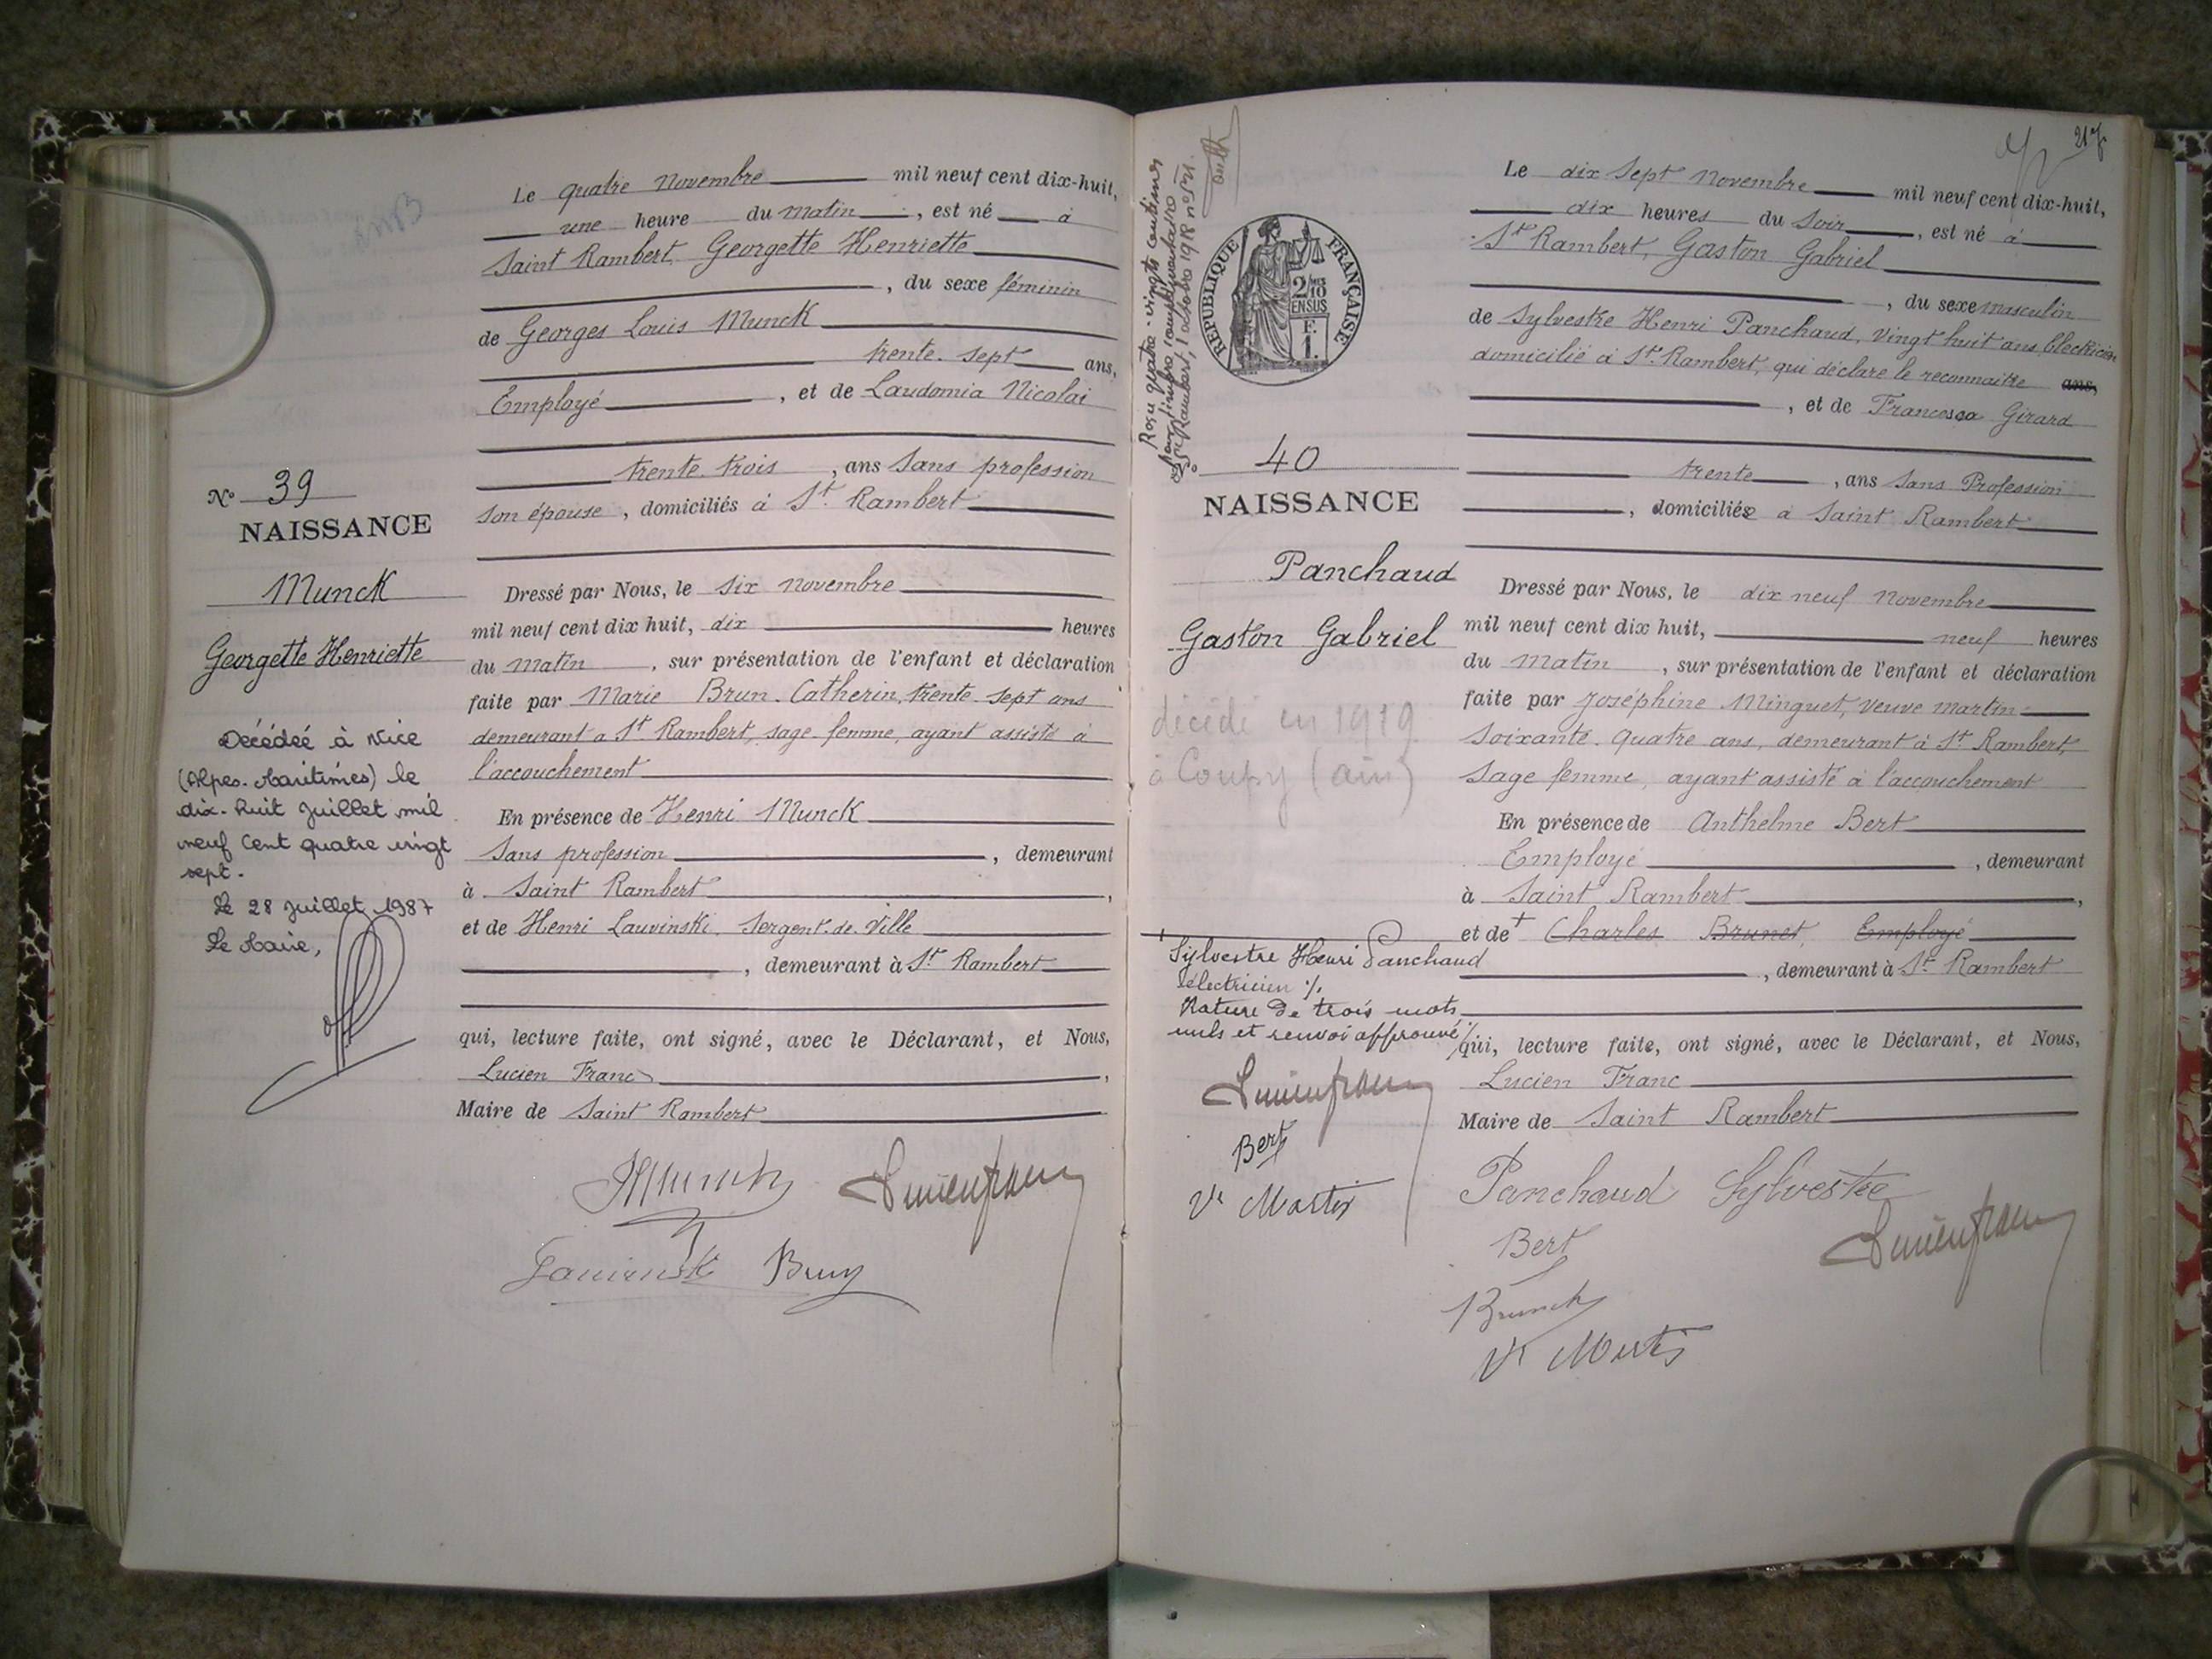 Le quatre Novembre mil neuf cent dix-huit,
une heure du matin, est né à
Saint Rambert, Georgette Henriette
, du sexe féminin
de Georges Louis Munck
trente-sept ans,
Employé, et de Laudomia Nicolai
trente trois, ans Sans profession
son épouse, domiciliés à St Rambert
N° 39
NAISSANCE
Munck
Georgette Henriette
Décédée à Nice
(Alpes-Maritimes) le
dix-huit Juillet mil
neuf cent quatre vingt
sept.
Le 28 Juillet 1987
Le Maire,
Dressé par Nous, le six novembre
mil neuf cent dix huit, dix heures
du matin, sur présentation de l'enfant et déclaration
faite par Marie Brun-Catherin, trente-sept ans
demeurant a St Rambert, sage-femme, ayant assisté à
l'accouchement
En présence de Henri Munck
Sans profession, demeurant
à Saint Rambert,
et de Henri Lauvinski, Sergent-de-Ville
, demeurant à St Rambert
qui, lecture faite, ont signé, avec le Déclarant, et Nous,
Lucien Franc,
Maire de Saint Rambert
HMunck Lucienfranc
Brun
217
Reçu quatre-vingts centimes
pour timbre complémentaire
St Rambert, 1 octobre 1918 n° 521.
REPUBLIQUE FRANÇAISE
2/10
EN SUS
F.
1.
Le dix sept Novembre mil neuf cent dix-huit,
dix heures du Soir, est né à
St Rambert, Gaston Gabriel
, du sexe masculin
de Sylvestre Henri Panchaud, vingt huit ans, Electricien
domicilié à St Rambert, qui déclare le reconnaître ans,
, et de Francesca Girard
trente, ans Sans Profession
, domiciliée a Saint Rambert
40
NAISSANCE
Panchaud
Gaston Gabriel
décédé en 1919
à Coupy (ain)
Dressé par Nous, le dix neuf novembre
mil neuf cent dix huit, neuf heures
du matin, sur présentation de l'enfant et déclaration
faite par Joséphine Minguet, veuve martin
Soixante-quatre ans, demeurant à St Rambert,
Sage femme, ayant assisté à l'accouchement
En présence de Anthelme Bert
Employé, demeurant
à Saint Rambert,
et de + Charles Brunet, Employé
, demeurant à St Rambert
Sylvestre Henri Panchaud
électricien ./.
Rature de trois mots
nuls et renvoi approuvé ./.
Lucienfranc
Bert
Ve Martin
qui, lecture faite, ont signé, avec le Déclarant, et Nous,
Lucien Franc
Maire de Saint Rambert
Panchaud Sylvestre
Bert
Lucienfranc
Ve Martin